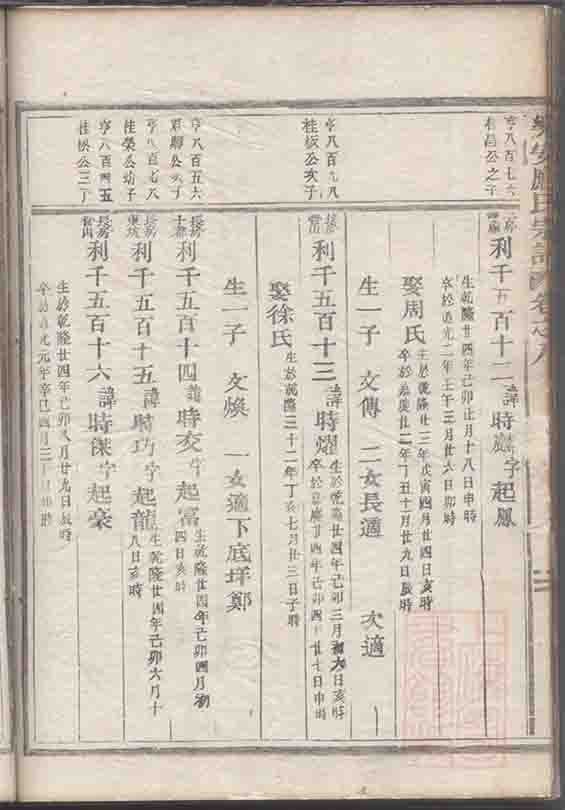 亨八百七六
利千五百十二諱時麟字起鳳
生乾隆廿四年己卯正月十八日申時
卒於道光二年壬午三月廿六日卯時
娶周氏生於乾隆廿三年戊寅四月廿四日亥時
卒於嘉慶廿二年丁丑十月廿九日辰時
生一子 文傳 二女長適 次適
亨八百九八
桂板公次子
利千五百十三諱時燿生於乾隆廿四年己卯三月初六日亥時
卒於嘉慶廿四年己卯四月廿七日申時
娶徐氏生於乾隆三十二年丁亥七月廿三日子時
生一子 文煥 一女適下底垟鄭
亨八百五六
利千五百十四諱時交字起富生乾隆廿四年己卯四月初
四日亥時
亨八百七八
桂榮公幼子
利千五百十五諱時巧字起龍生乾隆廿四年己卯六月十
八日亥時
亨八百四五
利千五百十六諱時傑字起豪
生於乾隆廿四年己卯八月廿九日辰時
卒於道光元年辛巳四月三十日卯時